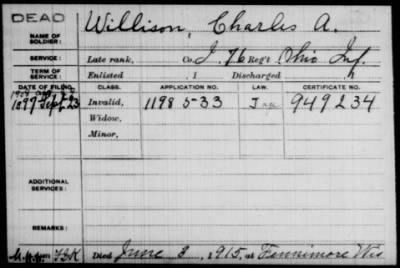 DEAD
NAME OF SOLDIER: Willison, Charles A.
SERVICE: Late rank, Co. I, 76 Reg't Ohio Inf.
TERM OF SERVICE: Enlisted , 1 Discharged , 1
DATE OF FILING. CLASS. APPLICATION NO. LAW. CERTIFICATE NO.
1897 Sept. 23 Invalid, 1198 533 949234
Widow,
Minor,
ADDITIONAL SERVICES:
REMARKS:
Died June 3, 1915, at Fennimore Wis